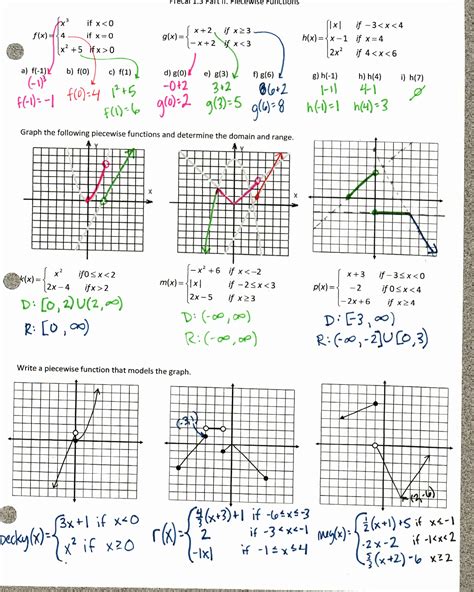 Precal 1.3 Part II: Piecewise Functions
f(x)= { x³ if x<0
4 if x=0
x²+5 if x>0
g(x)= { x+2 if x≥3
-x+2 if x<3
h(x)= { |x| if -3<x<4
x-1 if x=4
2x² if 4<x<6
a) f(-1) b) f(0) c) f(1) d) g(0) e) g(3) f) g(6) g) h(-1) h) h(4) i) h(7)
(-1)³ f(0)=4 1²+5 -0+2 3+2 6+2 |-1| 4-1 ∅
f(-1)=-1 f(1)=6 g(0)=2 g(3)=5 g(6)=8 h(-1)=1 h(4)=3
Graph the following piecewise functions and determine the domain and range.
Y Y Y
X X X
k(x)= { x² if 0≤x<2
2x-4 if x>2
m(x)= { -x²+6 if x<-2
|x| if -2≤x<3
2x-5 if x≥3
p(x)= { x+3 if -3≤x<0
-2 if 0≤x<4
-2x+6 if x≥4
D: [0,2)U(2,∞) D: (-∞,∞) D: [-3,∞)
R: [0,∞) R: (-∞,∞) R: (-∞,-2]U[0,3)
Write a piecewise function that models the graph.
(2,-6)
becky(x)= { 3x+1 if x<0
x² if x≥0
r(x)= { 4/3(x+3)+1 if -6≤x≤-3
2 if -3<x<-1
-|x| if -1≤x≤4
{ 1/2(x+1)+5 if x<-1
-2x-2 if -1<x<2
(x+2)-6 x≥2